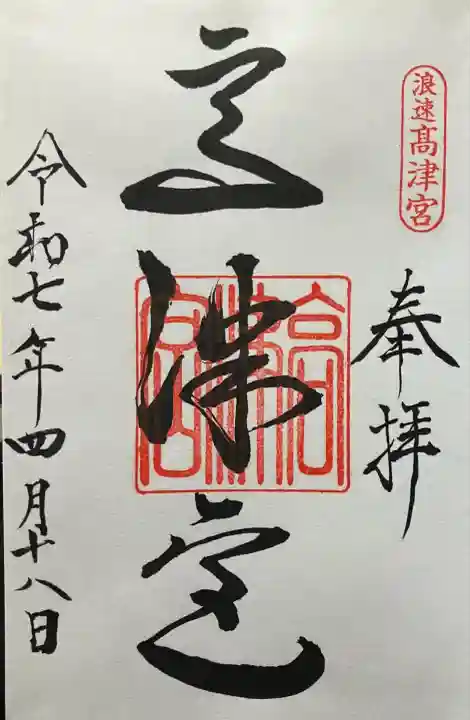 浪速高津宮
奉拝
高津宮
高津宮
令和七年四月十八日